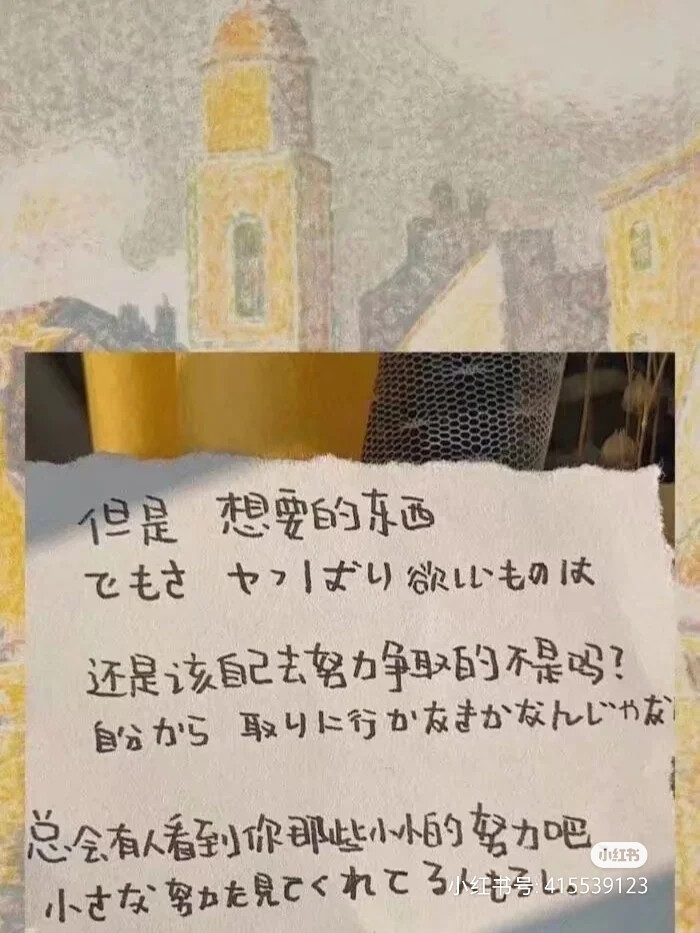 但是 想要的东西
でもさ ヤっぱり欲しいものは
还是该自己去努力争取的不是吗？
自分から 取りに行かなきかなんじゃな
总会有人看到你那些小小的努力吧
小さな努力を見てくれてる
小红书
小红书号: 415539123